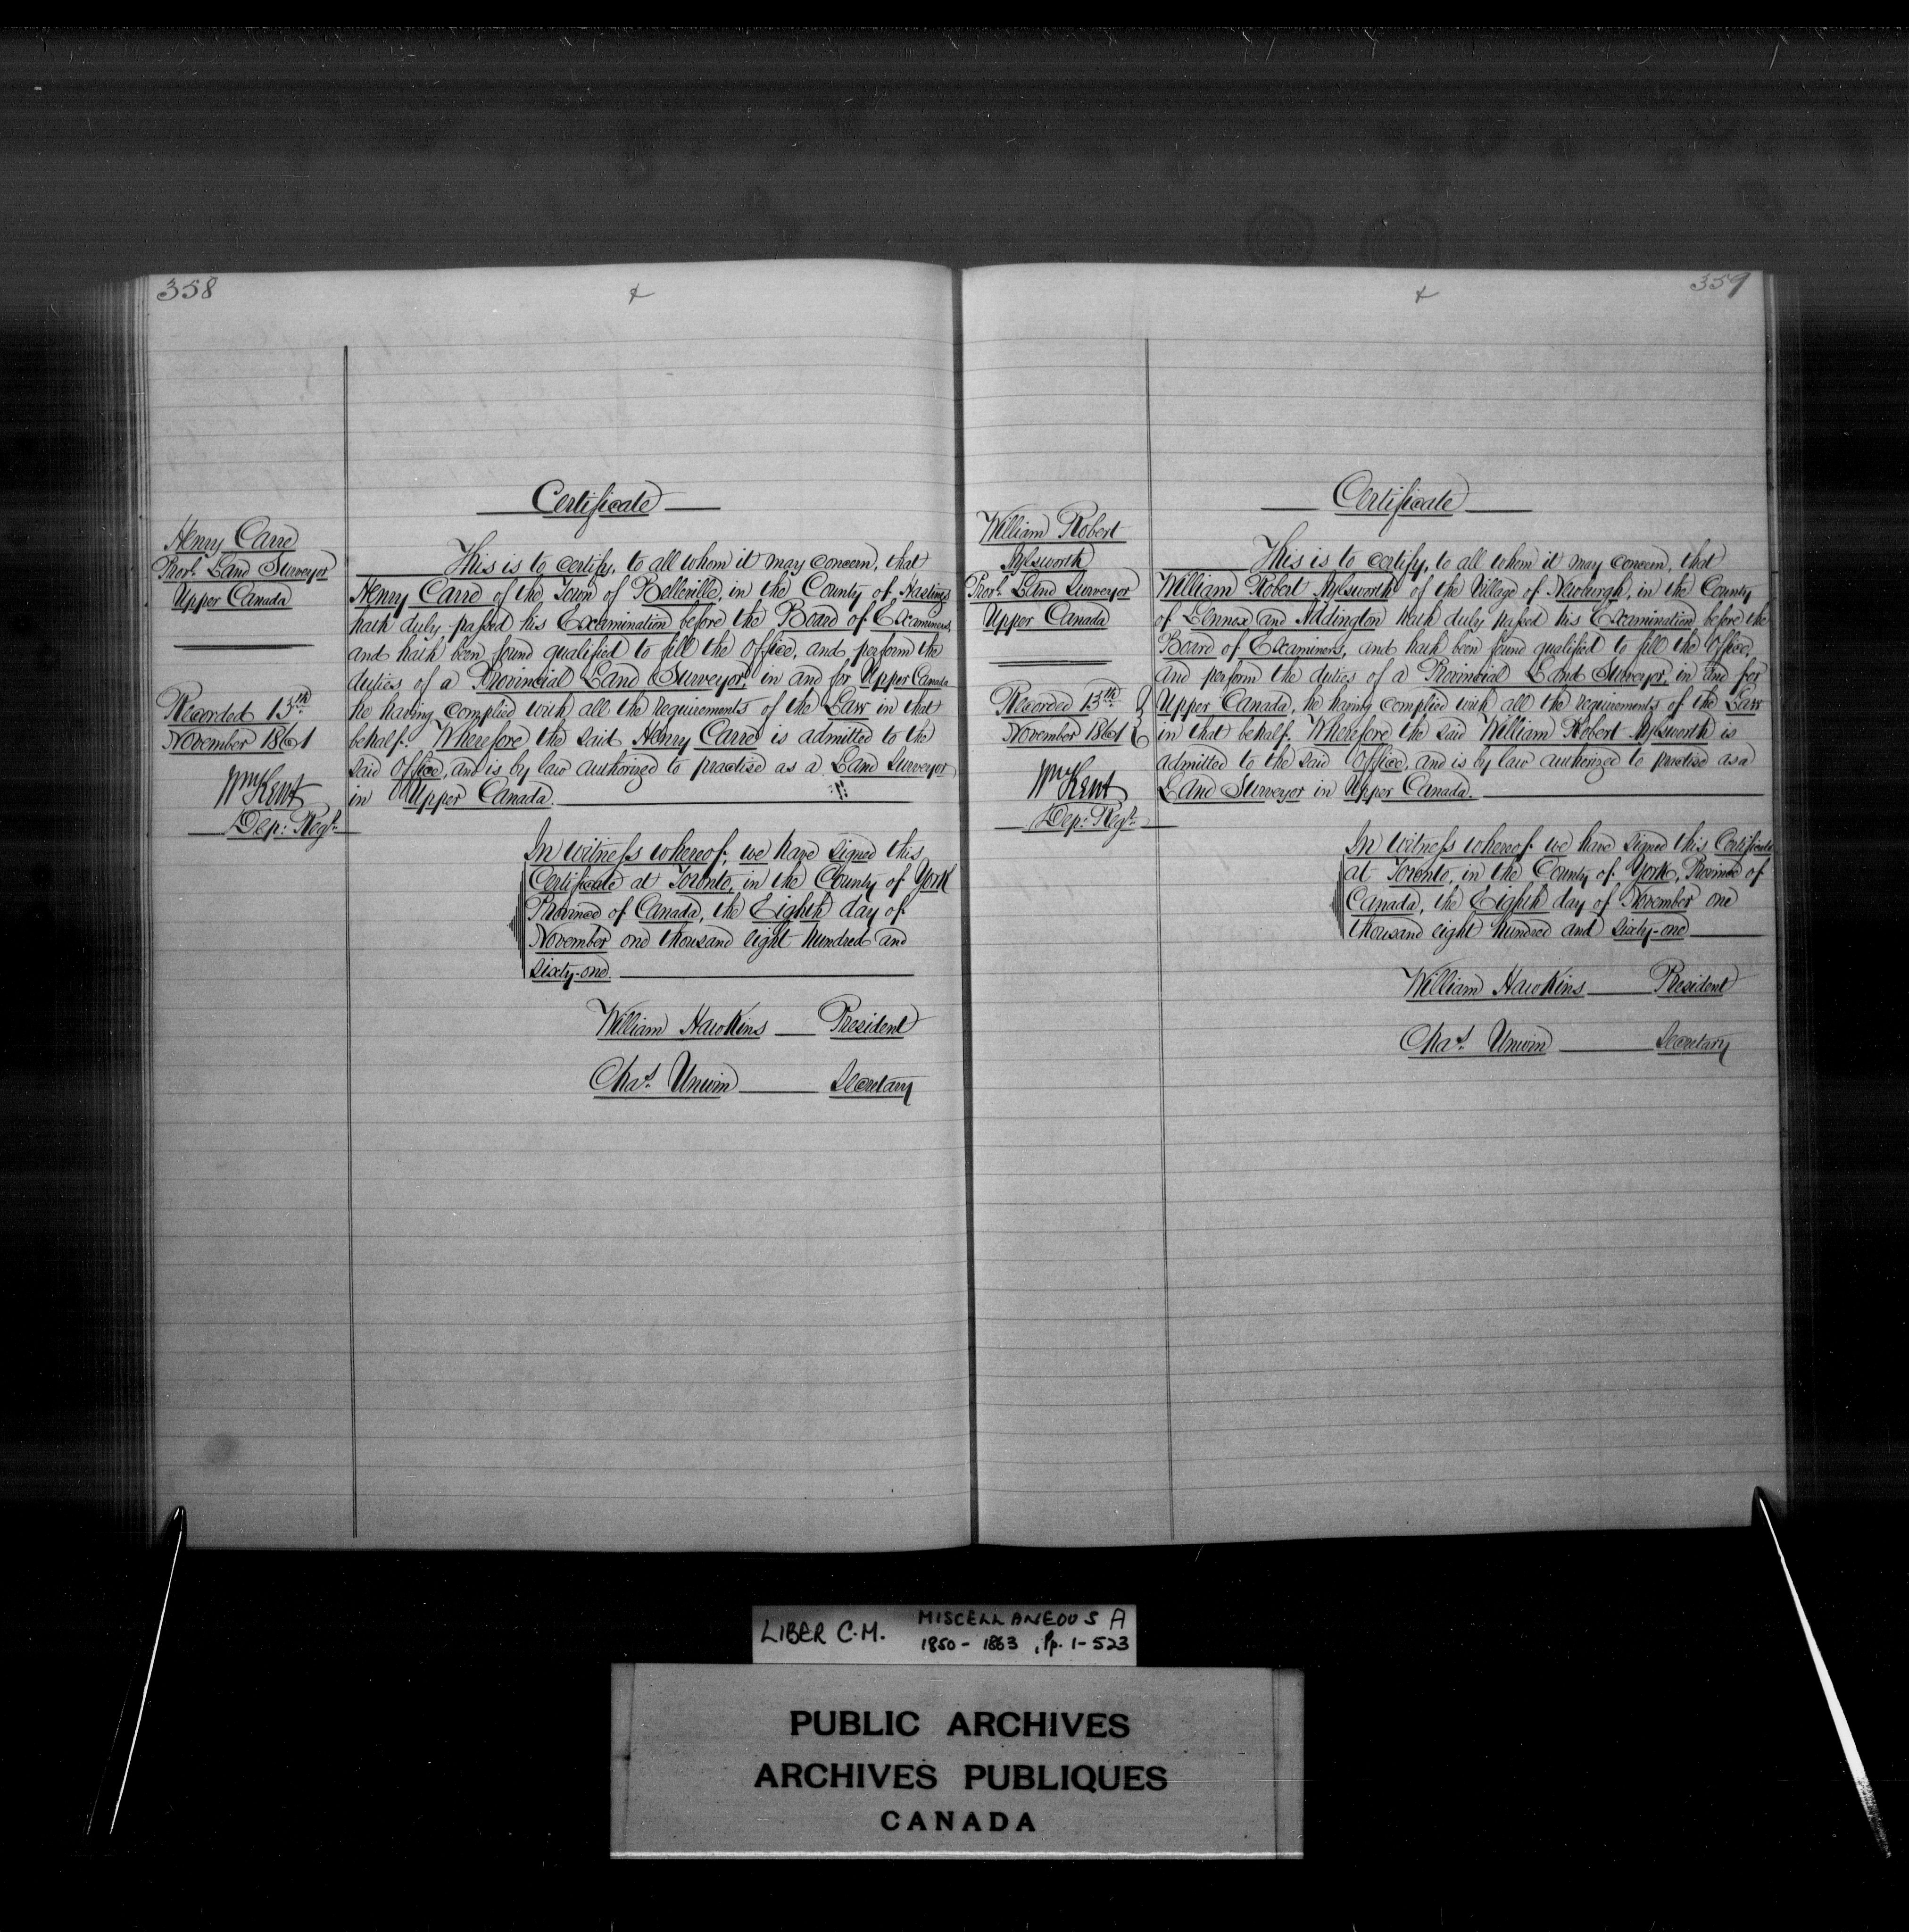 358
+
Certificate
Henry Carre
Provl. Land Surveyor
Upper Canada
Recorded 13th
November 1861
Wm Kent
Dep: Regr.
This is to certify, to all whom it may concern, that
Henry Carre of the Town of Belleville, in the County of Hastings
hath duly passed his Examination before the Board of Examiners,
and hath been found qualified to fill the Office, and perform the
duties of a Provincial Land Surveyor, in and for Upper Canada
he having complied with all the requirements of the Law in that
behalf. Wherefore the said Henry Carre is admitted to the
said Office, and is by law authorized to practise as a Land Surveyor
in Upper Canada.
In witness whereof, we have signed this
Certificate at Toronto, in the County of York
Province of Canada, the Eighth day of
November one thousand eight hundred and
sixty-one.
William Hawkins President
Chas. Unwin Secretary
359
+
Certificate
William Robert
Aylsworth
Provl. Land Surveyor
Upper Canada
Recorded 13th
November 1861
Wm Kent
Dep: Regr.
This is to certify, to all whom it may concern, that
William Robert Aylsworth of the Village of Newburgh, in the County
of Lennox and Addington hath duly passed his Examination before the
Board of Examiners, and hath been found qualified to fill the Office,
and perform the duties of a Provincial Land Surveyor, in and for
Upper Canada, he having complied with all the requirements of the Law
in that behalf. Wherefore the said William Robert Aylsworth is
admitted to the said Office, and is by law authorized to practise as a
Land Surveyor in Upper Canada.
In witness whereof we have signed this Certificate
at Toronto, in the County of York, Province of
Canada, the Eighth day of November one
thousand eight hundred and sixty-one
William Hawkins President
Chas. Unwin Secretary
LIBER C.M. MISCELLANEOUS A
1850 - 1863, Pp. 1-523
PUBLIC ARCHIVES
ARCHIVES PUBLIQUES
CANADA